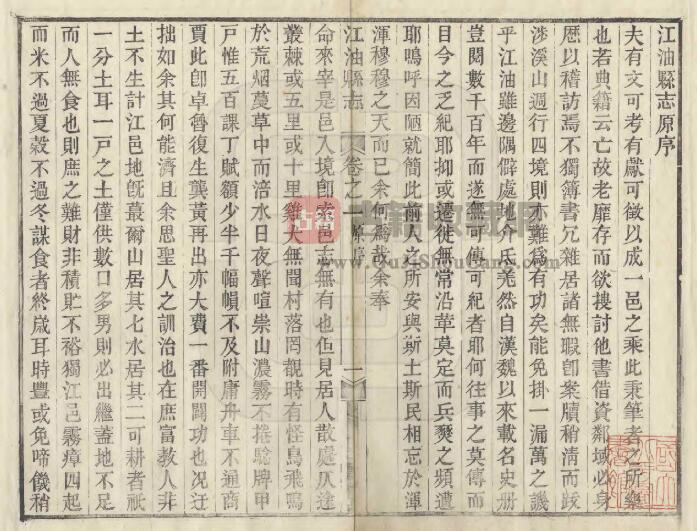 江油縣志原序
夫有文可考有獻可徵以成一邑之乘此秉筆者之所樂
也若典籍云亡故老靡存而欲摟討他書借資鄰域必身
歷以稽訪焉不獨簿書冗雜居諸無暇卽案牘稍清而跋
涉溪山週行四境則亦難為有功矣能免掛一漏萬之譏
乎江油雖邊隅僻處地介氐羌然自漢魏以來載名史冊
豈閱數千百年而遂無可傳可紀者耶何往事之莫傳而
目今之乏紀耶抑或遷徙無常沿革莫定而兵燹之頻遭
耶嗚呼因陋就簡此前人之所安與斯土斯民相忘於渾
渾穆穆之天而已余何爲哉余奉
江油縣志 卷之一 原序 一
命來宰是邑入境卽索邑志無有也但見居人散處仄逵
叢棘或五里或十里雞犬無聞村落罔覩時有怪鳥飛鳴
於荒烟蔓草中而涪水日夜聲喧崇山濃霧不捲騐牌甲
戶惟五百課丁賦額少半千幅幀不及附庸舟車不通商
賈此卽卓魯復生龔黃再出亦大費一番開闢功也况迂
拙如余其何能濟且余思聖人之訓治也在庶富教人非
土不生計江邑地旣蕞爾山居其七水居其二可耕者祇
一分土耳一戶之土僅供數口多男則必出繼蓋地不足
而人無食也則庶之難財非積貯不裕獨江邑霧瘴四起
而米不過夏穀不過冬謀食者終歲耳時豐或免啼饑稍
古籍收藏网
www.GuJiShouCang.com